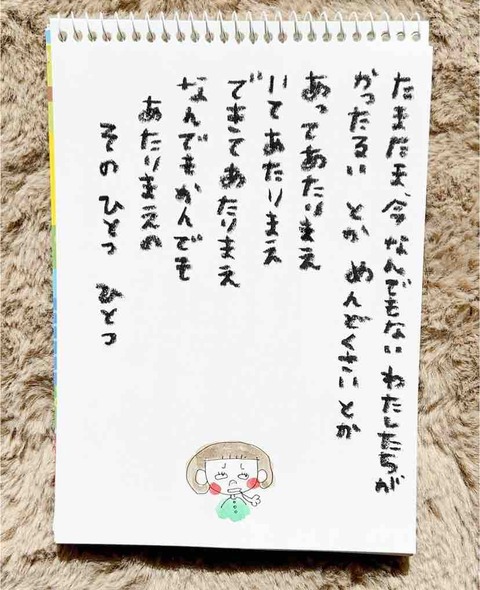 たまたま、今 なんでもない わたしたちが
かったるい とか めんどくさい とか
あってあたりまえ
いてあたりまえ
できてあたりまえ
なんでもかんでも
あたりまえの
その ひとつ ひとつ